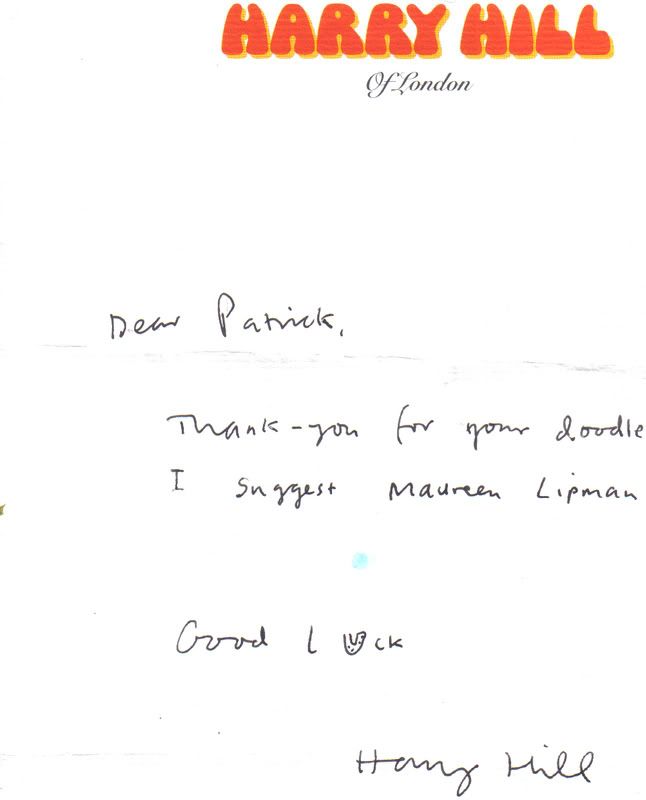 HARRY HILL
Of London
Dear Patrick,
Thank-you for your doodle
I suggest Maureen Lipman
Good Luck
Harry Hill